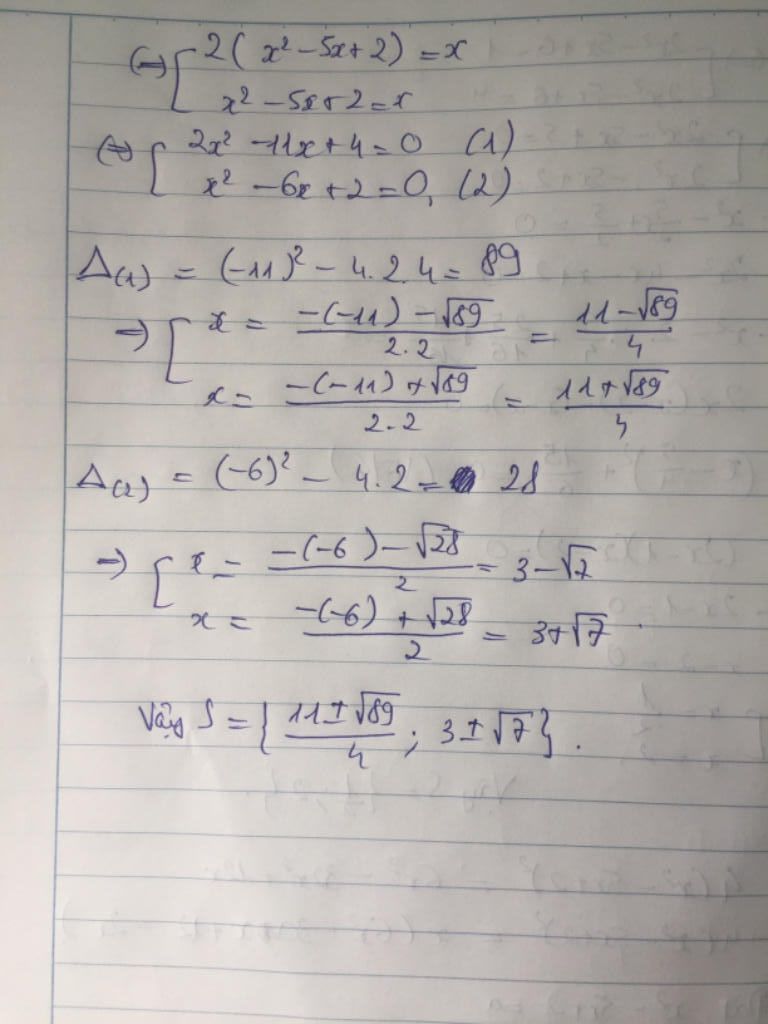 (=) [ 2(x² - 5x + 2) = x
x² - 5x + 2 = x
(=) [ 2x² - 11x + 4 = 0 (1)
x² - 6x + 2 = 0, (2)
Δ(1) = (-11)² - 4.2.4 = 89
=) [ x = (-(-11) - √89)/(2.2) = (11 - √89)/4
x = (-(-11) + √89)/(2.2) = (11 + √89)/4
Δ(2) = (-6)² - 4.2 = 28
=) [ x = (-(-6) - √28)/2 = 3 - √7
x = (-(-6) + √28)/2 = 3 + √7.
Vậy S = { (11 ± √89)/4 ; 3 ± √7 }.